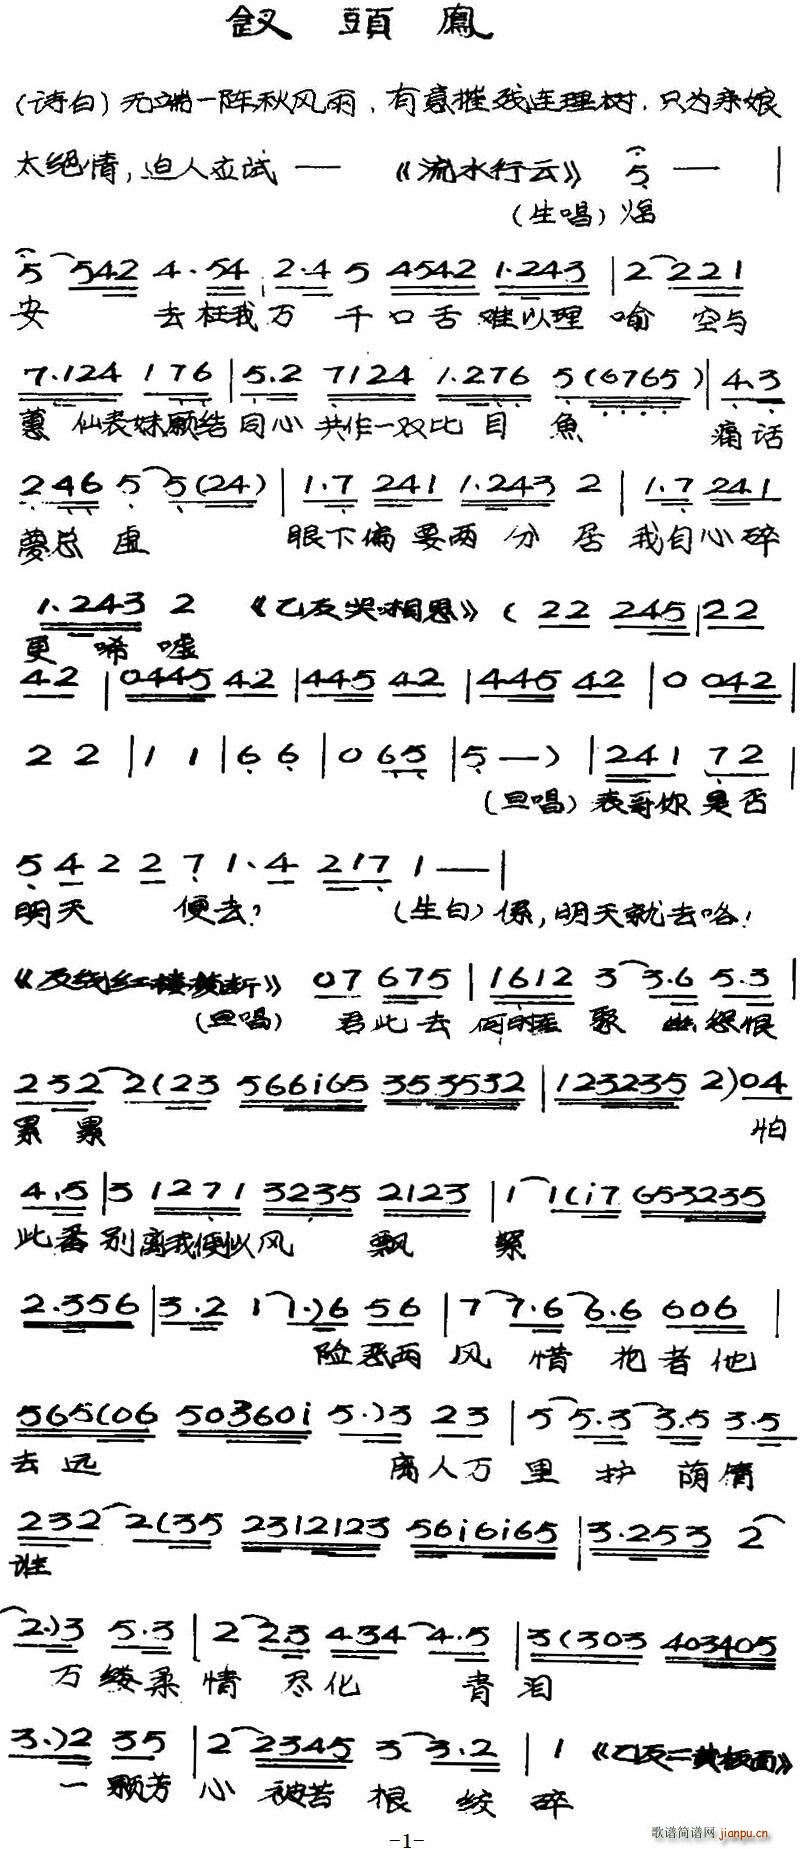 釵頭鳳
(诗白)无端一阵秋风雨,有意摧残连理树.只为亲娘
太绝情,迫人应试 — 《流水行云》 5 — |
(生唱)焓
5 542 4·54 2·4 5 4542 1·243 | 2 221
安 去枉我万 千口舌难以理 喻 空与
7·124 176 | 5·2 7124 1·276 5(6765) | 4·3
蕙 仙表妹愿结 同心 共作一双比 目 魚 痛话
246 5 5(24) | 1·7 241 1·243 2 | 1·7 241
夢总 虚 眼下偏 要两 分 居 我自心碎
1·243 2 《乙反哭相思》 ( 22 245 | 22
更 唏 嘘
42 | 0445 42 | 445 42 | 445 42 | 0 042 |
2 2 | 1 1 | 6 6 | 0 65 | 5 — ) | 241 72 |
(旦唱)表哥你 是否
5 4 2 2 7 1·4 217 1 — |
明天 便去? (生白)係,明天就去咯!
《反线红楼梦断》 07 675 | 1612 3 3·6 5·3 |
(旦唱) 君此去 何时 聚 怨恨
232 2(23 566i65 353532 | 123235 2)04
累 累 怕
4·5 | 3 1271 3235 2123 | 1 1(i7 653235
此番 别离我便似风 飘 絮
2·356 | 3·2 1 1·)6 56 | 7 7·6 6·6 606 |
险恶两 风 惜 抱者他
565(06 503601 5·)3 23 | 5 5·3 3·5 3·5
去 远 离人万 里 护 荫情
232 2·(35 2312123 56i6i65 | 3·253 2
谁
2·)3 5·3 | 2 2·3 434 4·5 | 3(303 403405
万 缕柔 情 尽化 青 泪
3·)2 35 | 2 2345 3 3·2 | 1 《乙反二黄板面》
一 颗芳 心 被苦 恨 绞 碎
-1-
歌谱简谱网 jianpu.cn